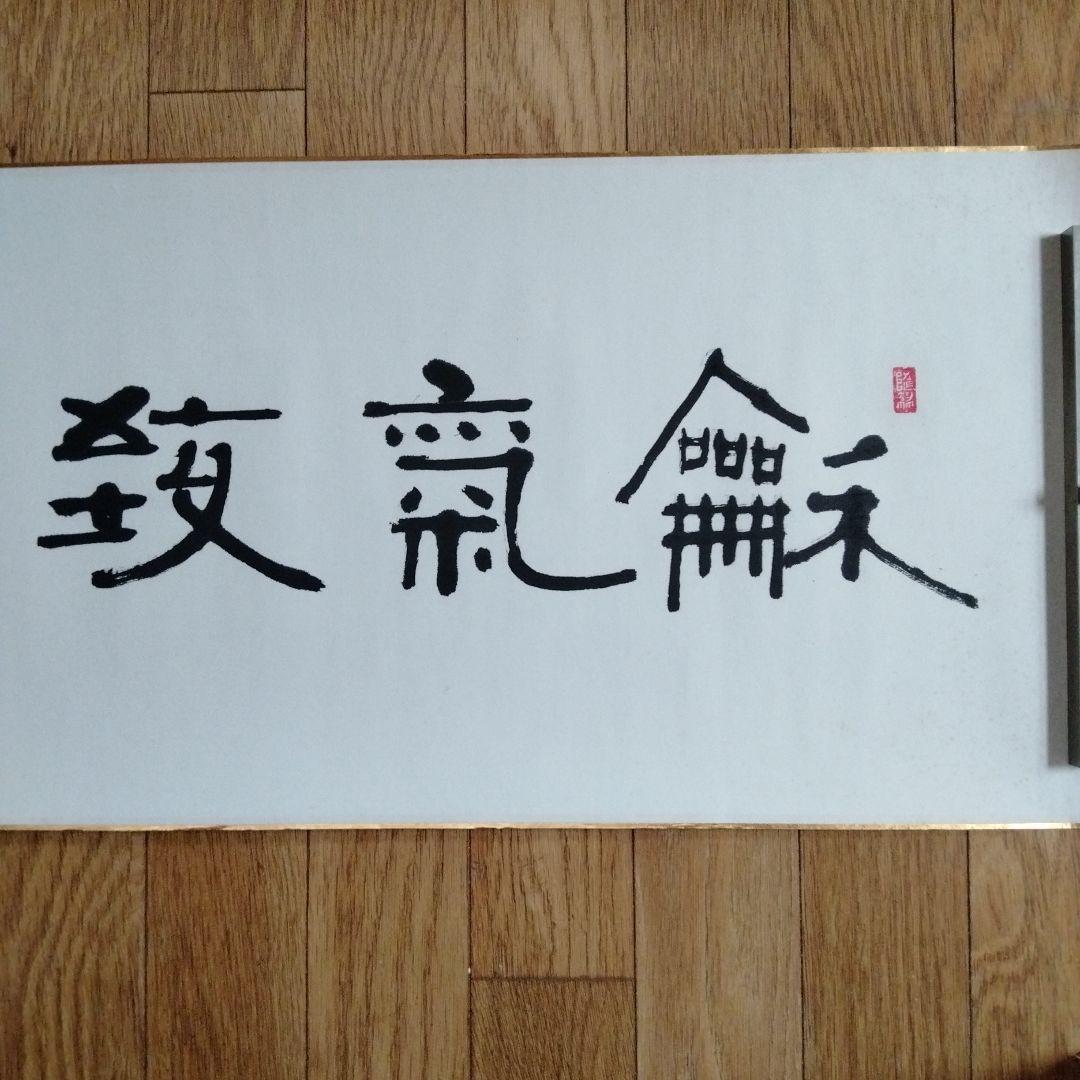 龢氣致